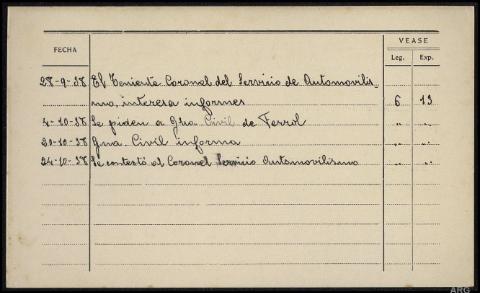 VEASE
FECHA
Leg. Exp.
28-9-38 El Teniente Coronel del Servicio de Automovilis-
mo, interesa informes 6 13
4-10-38 Se piden a Gua. Civil de Ferrol " "
20-10-38 Gua. Civil informa " "
24-10-38 Se contestó al Coronel Servicio Automovilismo " "
ARG